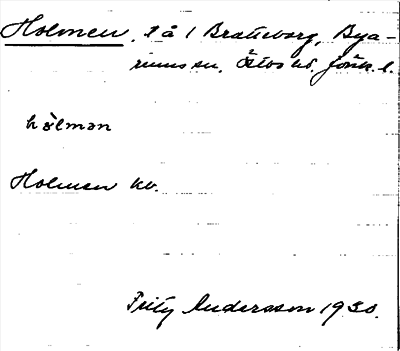 Holmen, 1 å 1 Bratteborg, Bya-
rums sn, Östbo hd. Jönk. l.
hòlmən
Holmen kv.
Fritz Andersson 1930.